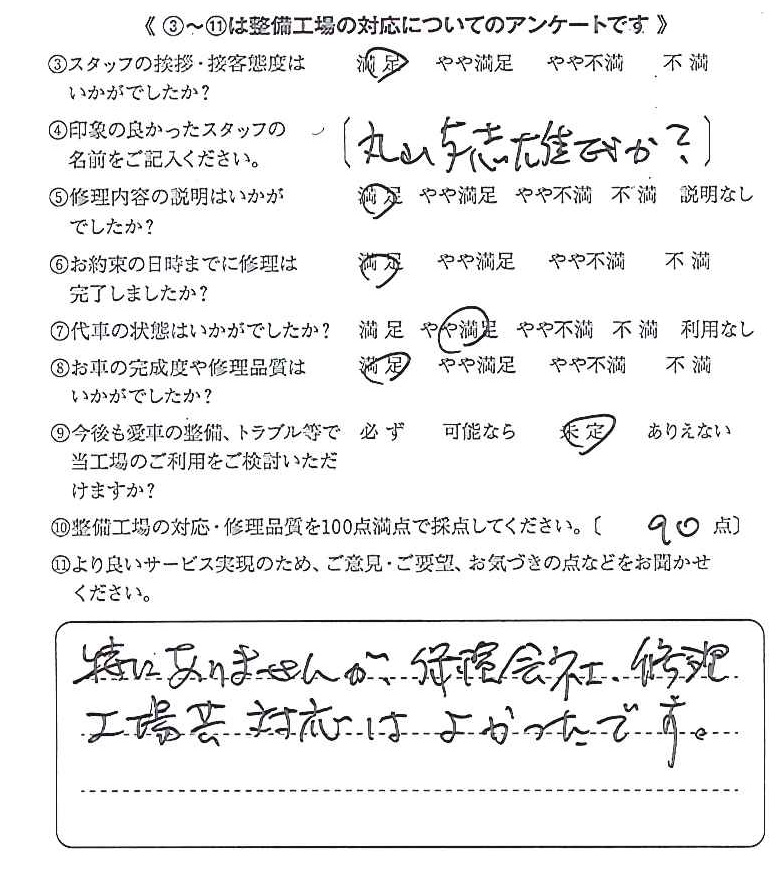 《 ③～⑪は整備工場の対応についてのアンケートです 》
③スタッフの挨拶・接客態度は 満 足 やや満足 やや不満 不 満
いかがでしたか?
④印象の良かったスタッフの
名前をご記入ください。 〔丸山 志雄ですか?〕
⑤修理内容の説明はいかが 満 足 やや満足 やや不満 不 満 説明なし
でしたか?
⑥お約束の日時までに修理は 満 足 やや満足 やや不満 不 満
完了しましたか?
⑦代車の状態はいかがでしたか? 満 足 やや満足 やや不満 不 満 利用なし
⑧お車の完成度や修理品質は 満 足 やや満足 やや不満 不 満
いかがでしたか?
⑨今後も愛車の整備、トラブル等で 必 ず 可能なら 未 定 ありえない
当工場のご利用をご検討いただ
けますか?
⑩整備工場の対応・修理品質を100点満点で採点してください。〔 90 点〕
⑪より良いサービス実現のため、ご意見・ご要望、お気づきの点などをお聞かせ
ください。
特にありませんが、保険会社、修理
工場共 対応は よかったです。